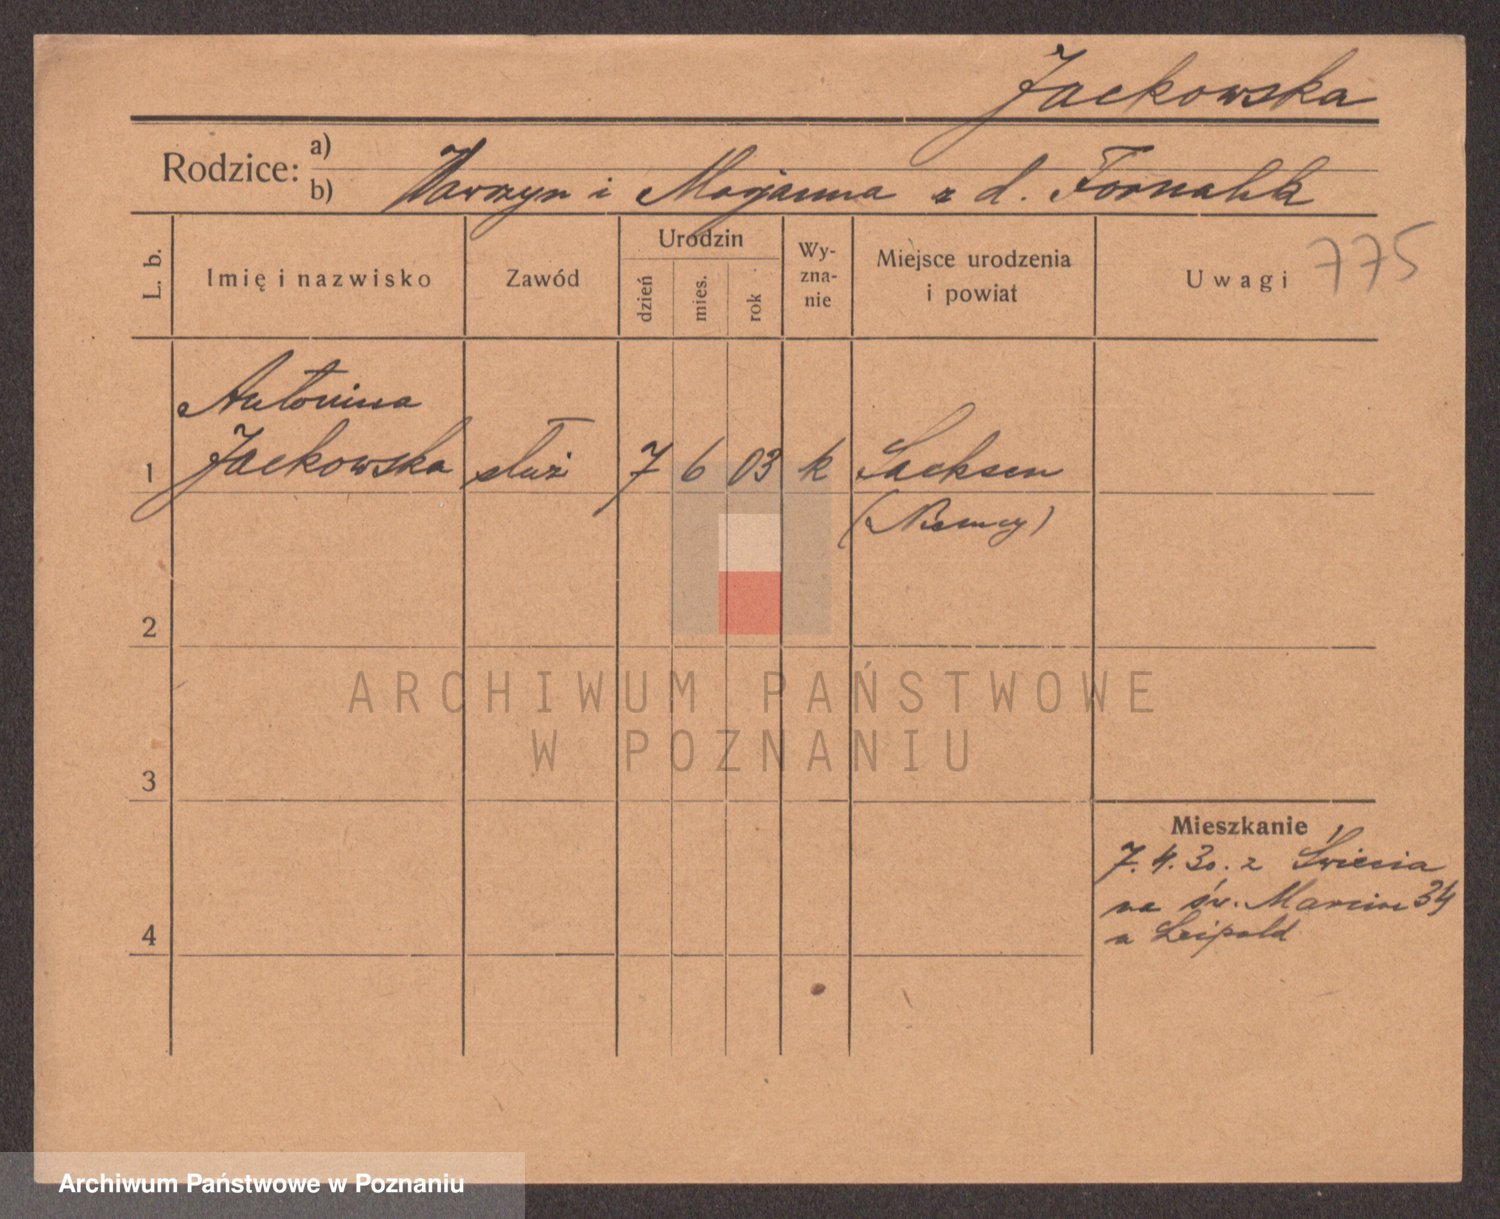 Jackowska
Rodzice: a)
b) Warzyn i Marjanna z d. Fornalik
L. b.
Imię i nazwisko
Zawód
Urodzin
dzień
mies.
rok
Wy-
zna-
nie
Miejsce urodzenia
i powiat
Uwagi 775
Antonina
1 Jackowska służ 7 6 03 k Sachsen
(Niemcy)
2
ARCHIWUM PAŃSTWOWE
W POZNANIU
3
Mieszkanie
7.4.30. z
na św. Marcin 34
4
a Leipold
Archiwum Państwowe w Poznaniu